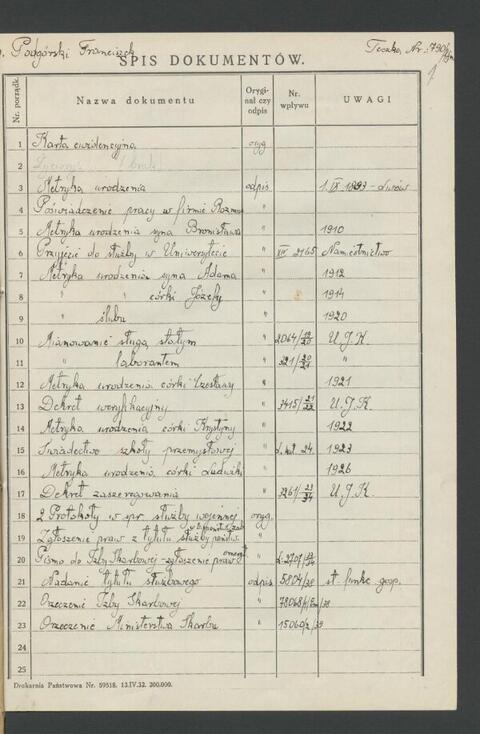 Podgórski Franciszek
Teczka Nr. 790
SPIS DOKUMENTÓW.
Nr. porządk. Nazwa dokumentu Orygi- nał czy odpis Nr. wpływu UWAGI
1 Karta ewidencyjna oryg
2
3 Metryka urodzenia odpis 1.IX 1893 - Lwów
4 Poświadczenie pracy w firmie "
5 Metryka urodzenia syna Bronisława " 1910
6 Przyjęcie do służby w Uniwersytecie " XIV 2165 Namiestnictwo
7 Metryka urodzenia syna Adama " 1912
8 " " córki Józefy " 1914
9 " ślubu " 1920
10 Mianowanie sługą stałym " 2064/19/20 U.J.K.
11 " laborantem " 321/20/21 "
12 Metryka urodzenia córki Czesławy " 1921
13 Dekret weryfikacyjny " 7415/21/22 U.J.K.
14 Metryka urodzenia córki Krystyny " 1922
15 Świadectwo szkoły przemysłowej " 24 1923
16 Metryka urodzenia córki Ludwiki " 1926
17 Dekret zaszeregowania " 3261/33/34 U.J.K.
18 2 Protokoły w spr służby wojennej oryg.
19 Zgłoszenie praw z tytułu służby państw. "
20 Pismo do Izby Skarbowej - zgłoszenie praw emeryt "
21 Nadanie tytułu służbowego odpis 5804/38 st. funkc gosp.
22 Orzeczenie Izby Skarbowej "
23 Orzeczenie Ministerstwa Skarbu " 15060/2/39
24
25
Drukarnia Państwowa Nr. 59518. 13.IV.32. 200.000.